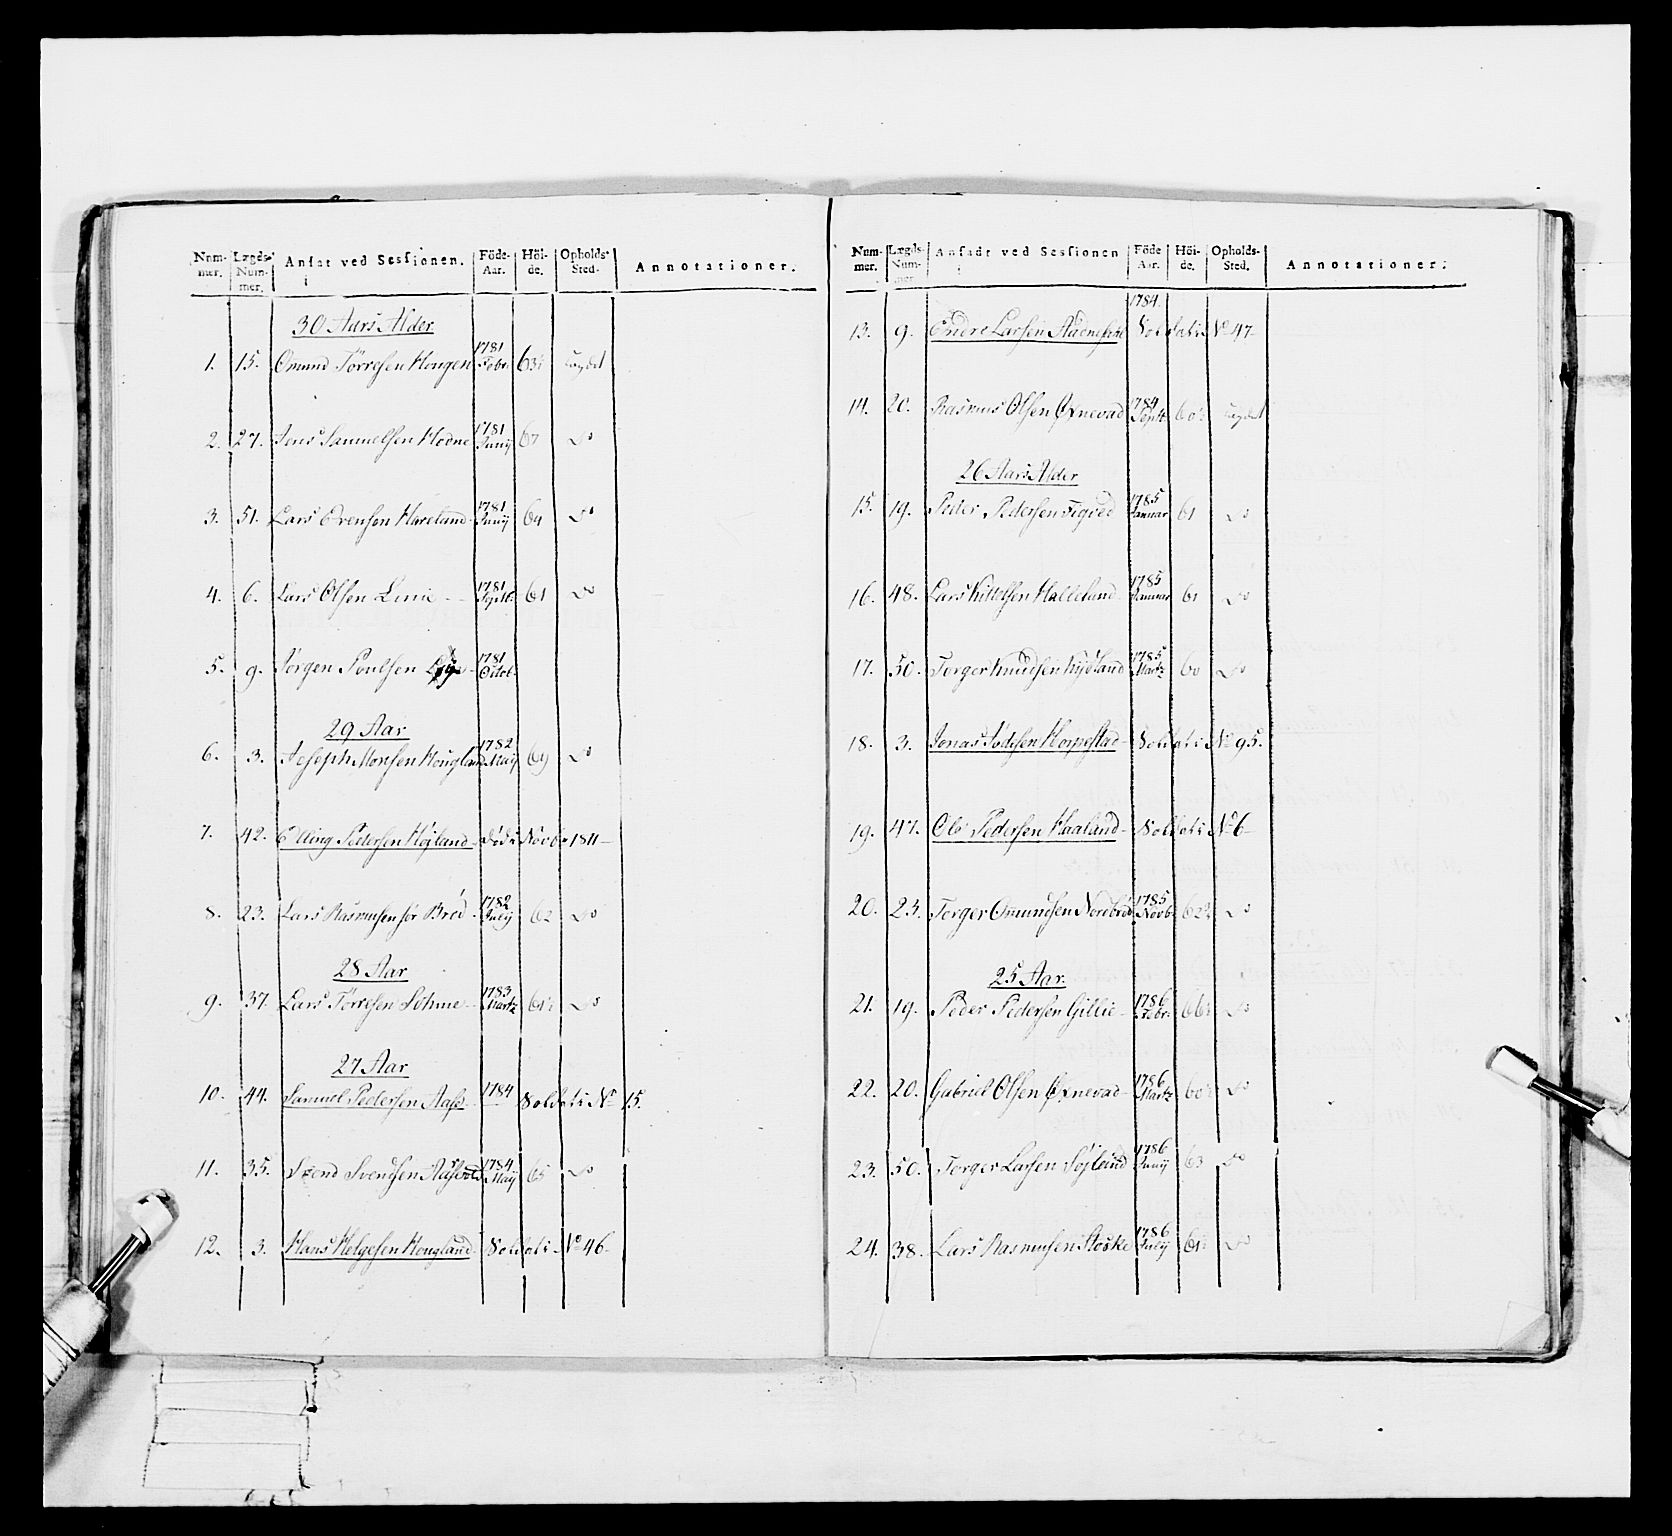 Num-mer. Lægds-Num-mer. Ansat ved Sessionen. Föde-Aar. Höi-de. Opholds-Sted. Annotationer.
30 Aars Alder
1. 15. Omund Törresen Hougen 1781 Febr: 63½ Lægdet
2. 27. Jens Samuelsen Hodne 1781 Junÿ 67 Do
3. 51. Lars Svensen Hareland 1781 Junÿ 64 Do
4. 6. Lars Olsen Linie 1781 Septb: 61 Do
5. 9. Jörgen Poulsen 1781 Octob:
29 Aar
6. 3. Joseph Monsen Hougland 1782 May 64 Do
7. 42. Elling Pedersen Höjland döde Novbr 1811
8. 23. Lars Rasmusen sör Bröd 1782 Julÿ 62 Do
28 Aar
9. 37. Lars Törresen Sohme 1783 Martz 61½ Do
27 Aar
10. 44. Samuel Pedersen Aass 1784 Soldat: No 15.
11. 35. Svend Svendsen 1784 May 65 Do
12. 3. Hans Helgesen Hougland Soldat: No 46
Num-mer. Lægds-Num-mer. Ansadt ved Sessionen Föde Aar. Höi-de. Opholds-Sted. Annotationer:
13. 9. Endre Larsen 1784. Soldat: No 47
14. 20. Rasmus Olsen Oxnevad 1784 Septb. 60½ Lægdet
26 Aars Alder
15. 19. Peder Pedersen Figved 1785 Januar 61 Do
16. 48. Lars Kittelsen Halleland 1785 Januar 61 Do
17. 50. Torger Knudsen Kydland 1785 Martz 60 Do
18. 3. Jonas Jodesen Horpestad Soldat: No 95.
19. 47. Ole Pedersen Haaland Soldat: No 6
20. 23. Torger Omundsen Nordbröd 1785 Novb: 62½ Do
25 Aar
21. 19. Peder Pedersen Gillie 1786 Febr: 66½ Do
22. 20. Gabriel Olsen Oxnevad 1786 Martz 60½ Do
23. 50. Torger Larsen Söjland 1786 Junÿ 63 Do
24. 38. Lars Rasmusen Stöske 1786 Julÿ 61½ Do